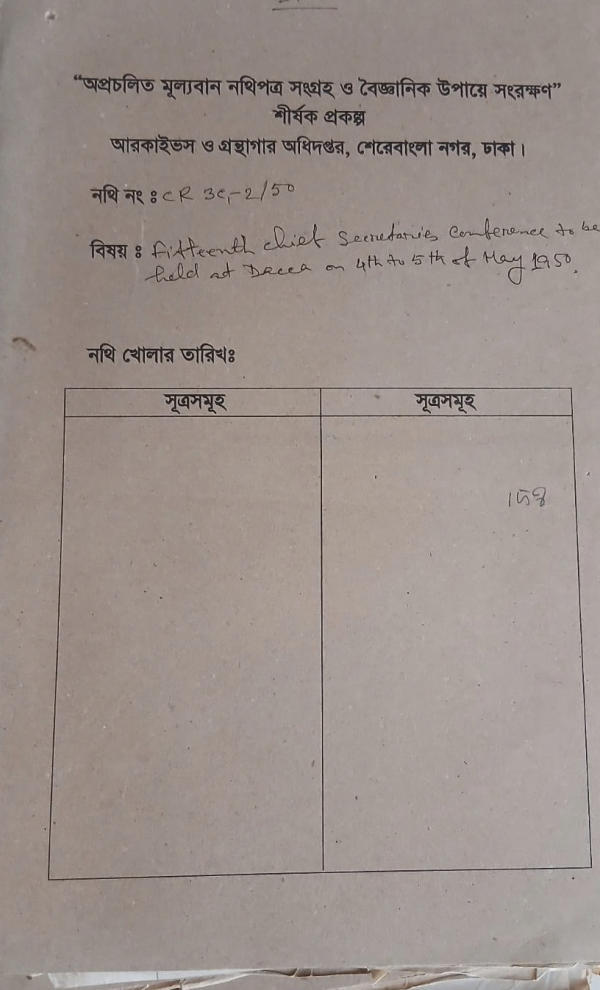 “অপ্রচলিত মূল্যবান নথিপত্র সংগ্রহ ও বৈজ্ঞানিক উপায়ে সংরক্ষণ”
শীর্ষক প্রকল্প
আরকাইভস ও গ্রন্থাগার অধিদপ্তর, শেরেবাংলা নগর, ঢাকা।
নথি নং ঃ CR 3C-2/50
বিষয় ঃ Fifteenth chief Secretaries Conference to be
held at Dacca on 4th to 5th of May 1950.
নথি খোলার তারিখঃ
সূত্রসমূহ সূত্রসমূহ